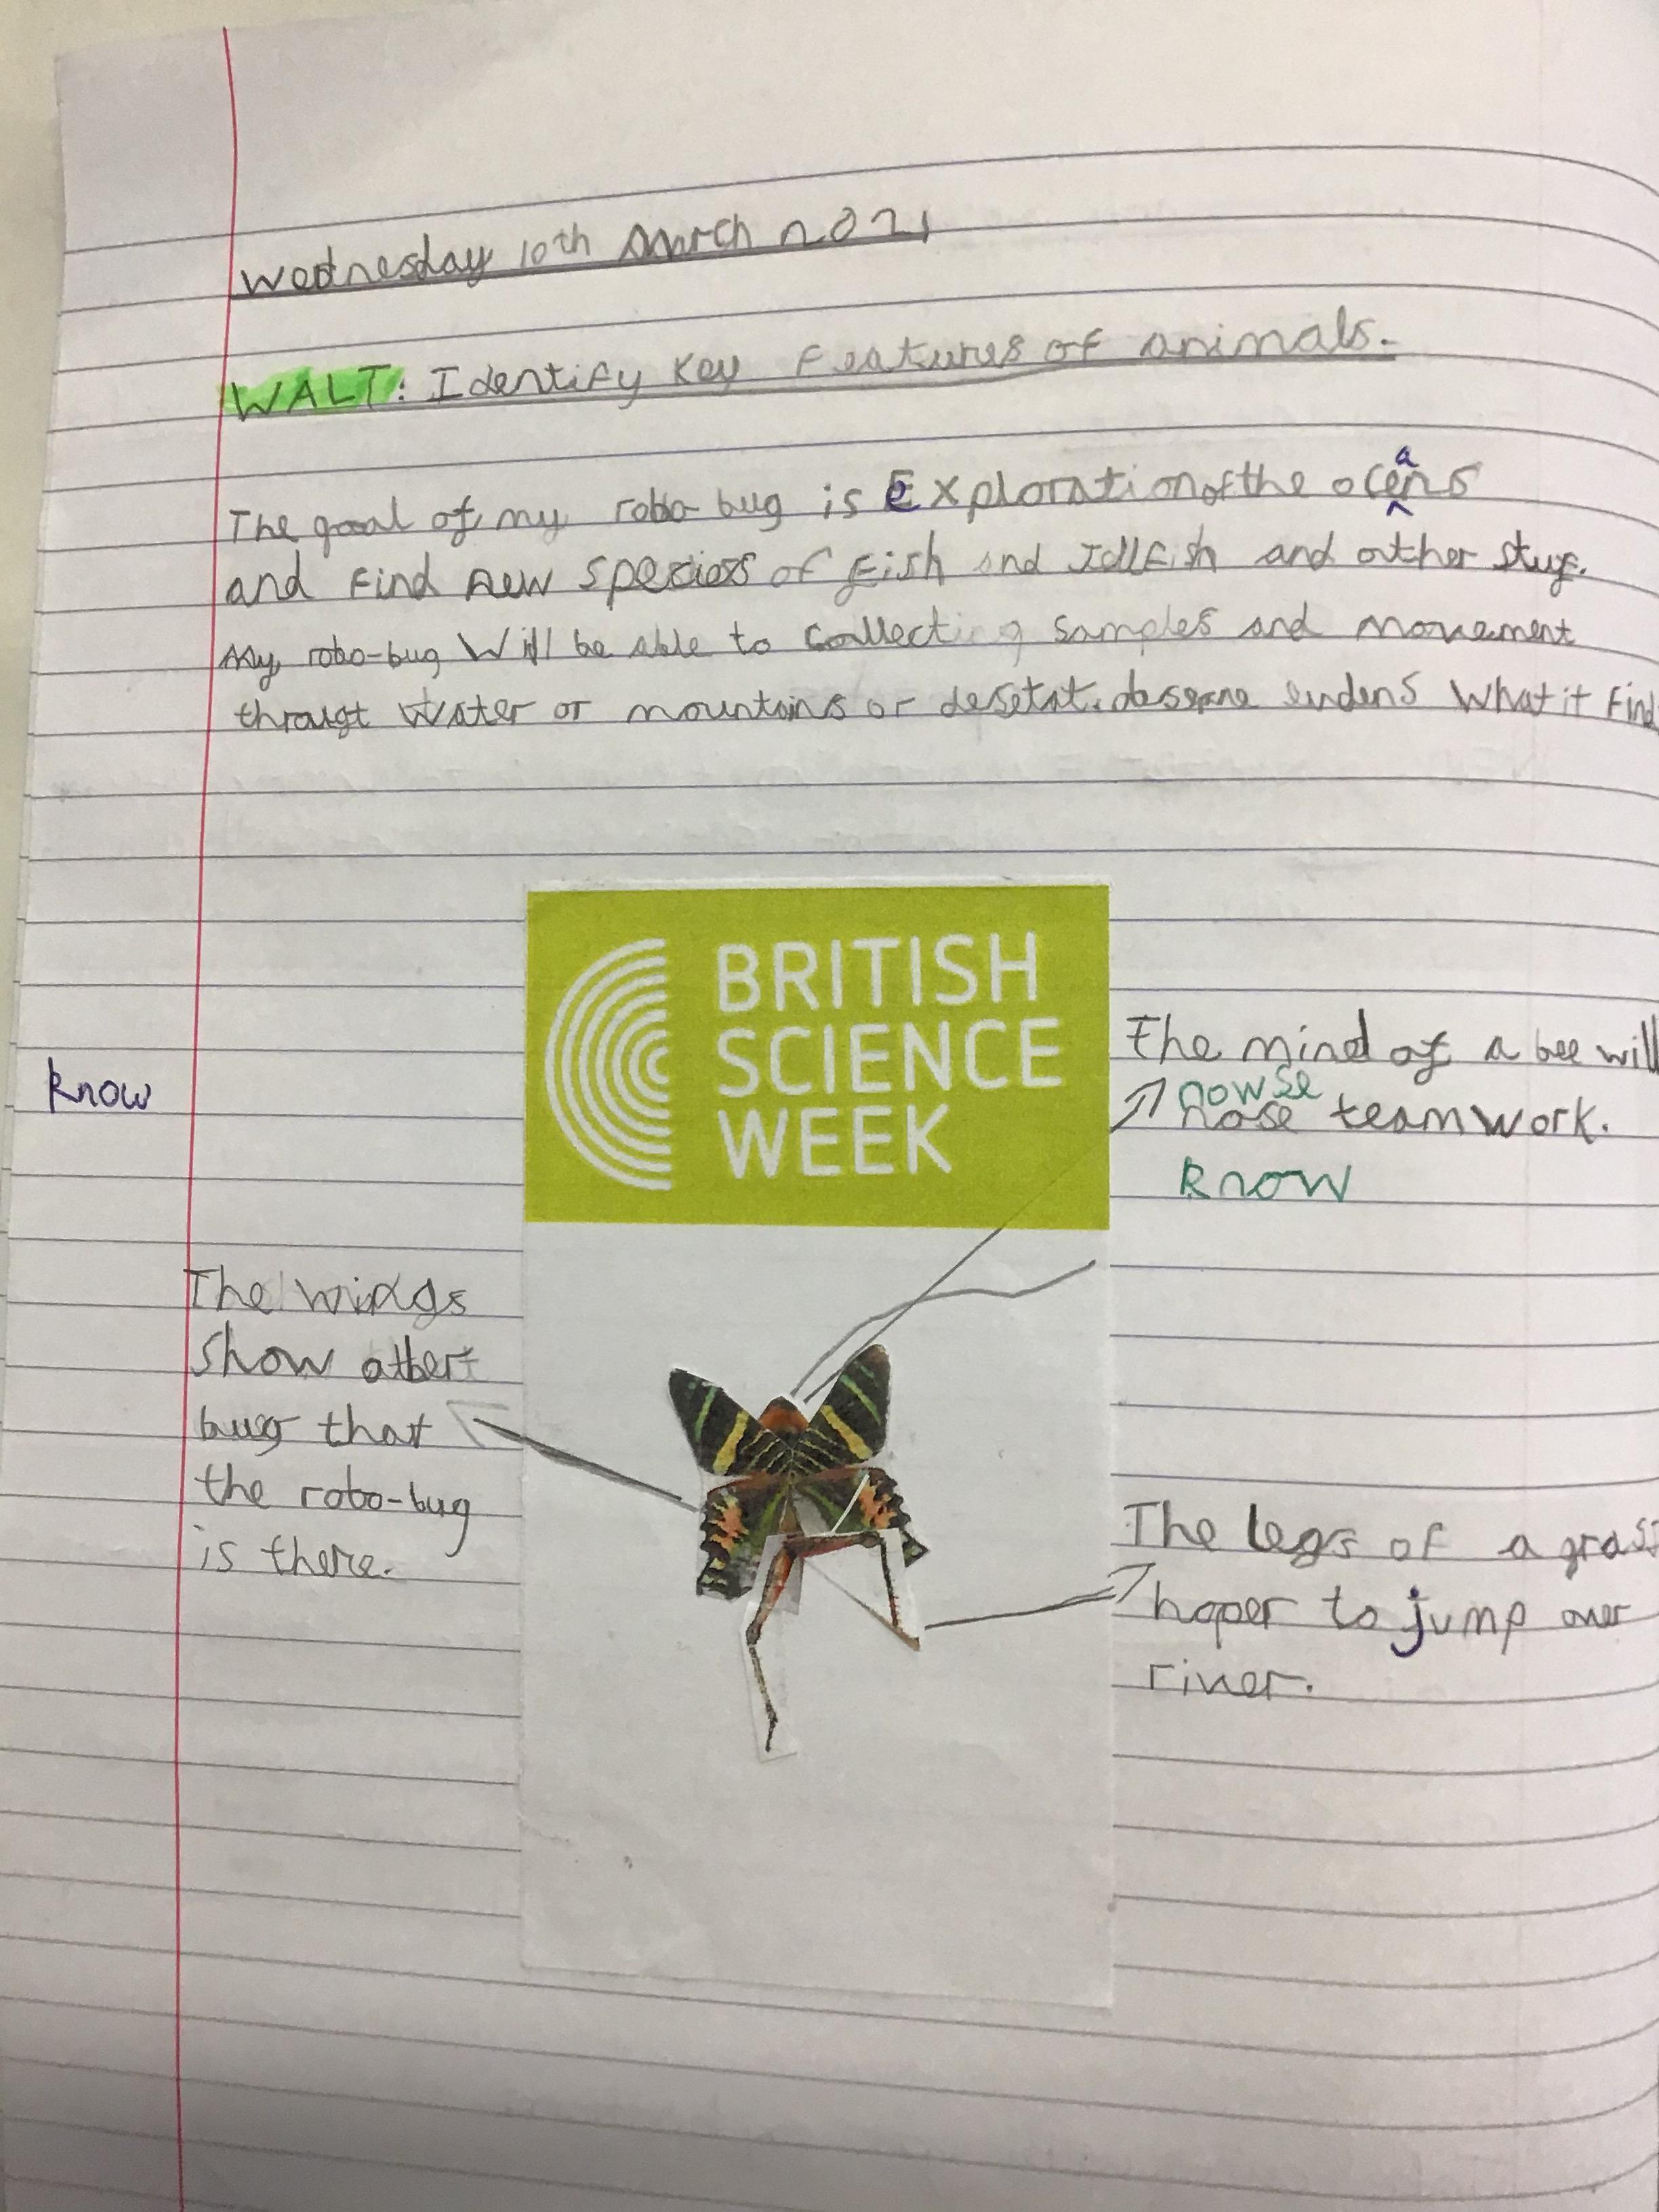 Wednesday 10th March 2021
WALT: Identify Key Features of animals.
a
The goal of my robo-bug is Explorationofthe ocens
and Find new species of Fish and JellFish and outher
My robo-bug Will be able to Collecting Samples and movement
Water or mountains or What it Find
BRITISH
SCIENCE
WEEK
The mind of a bee will
nowse
nose teamwork.
know
know
The wings
Show
bug that
the robo-bug
is there.
The legs of a grass
hoper to jump over
river.